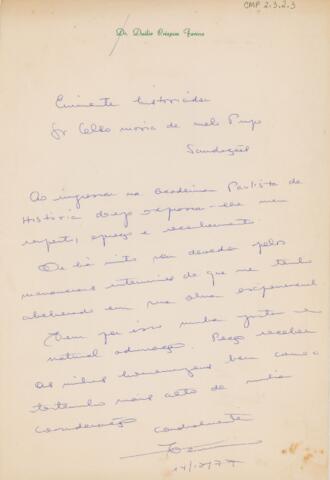 CMP 2.3.2.3
Dr. Duilio Crispim Farina
Eminente historiador
Sr Celso maria de mello Pupo
Saudações
Ao ingressar na academia Paulista de
História desejo expressar-lhe meu
respeito, apreço e
De há muito sou devedor pelos
de que me tenho
abeberado em sua obra
Vem por isso minha justa e
natural admiração. Peço receber
as minhas homenagens bem como o
mais alto de minha
consideração cordialmente